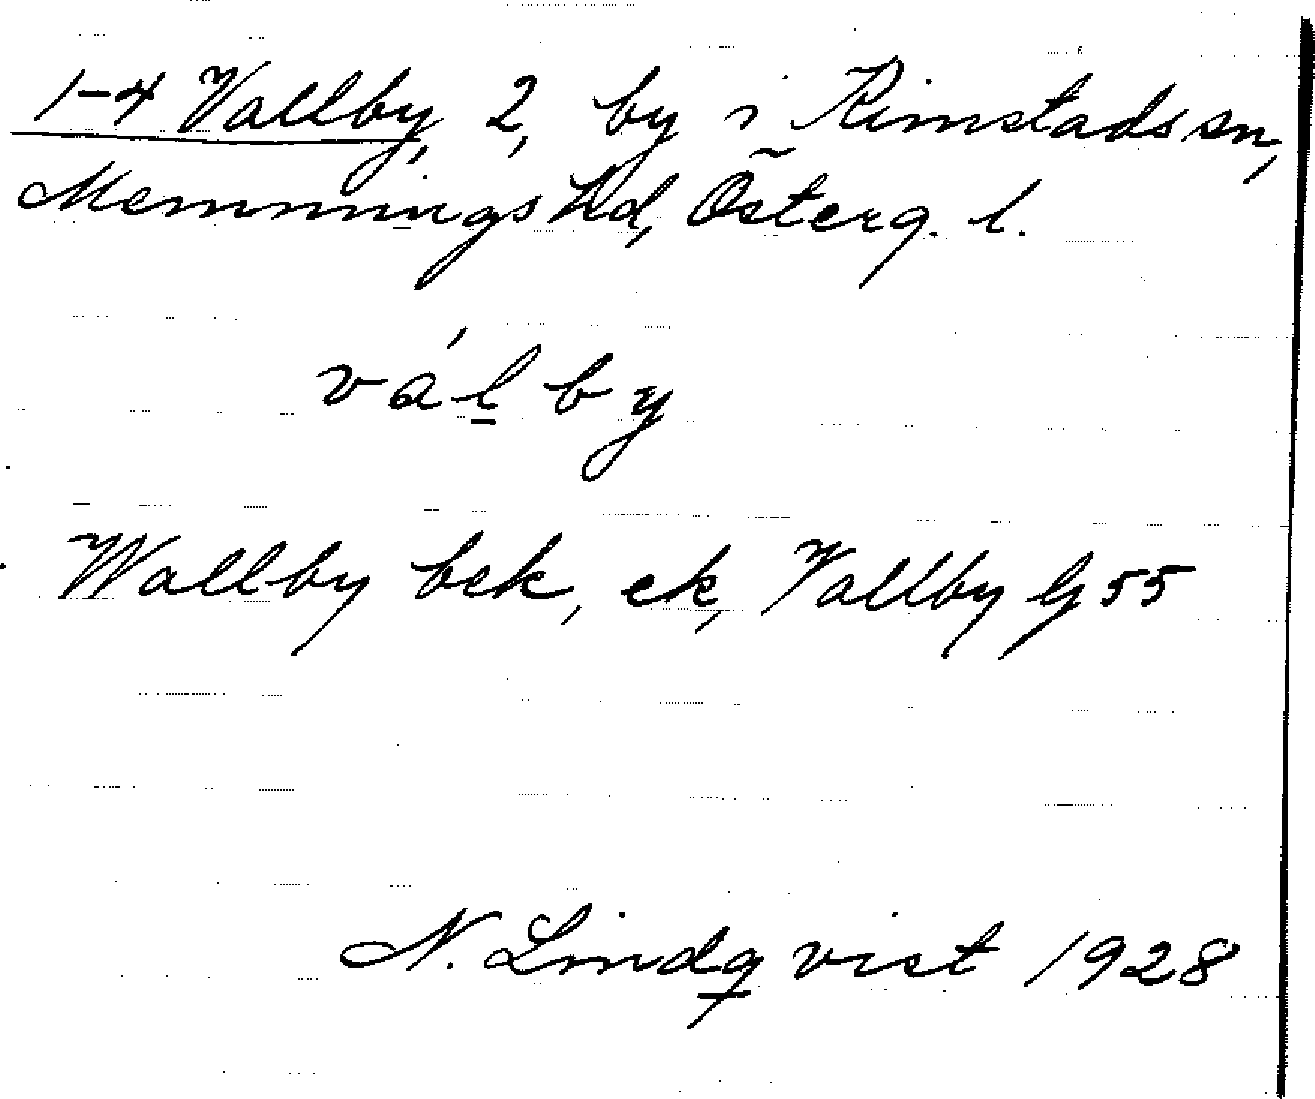 1-4 Vallby, 2, by i Rimstads sn,
Memmings hd, Österg. l.
váḻby
Wallby bek, ek, Vallby G 55
N. Lindqvist 1928